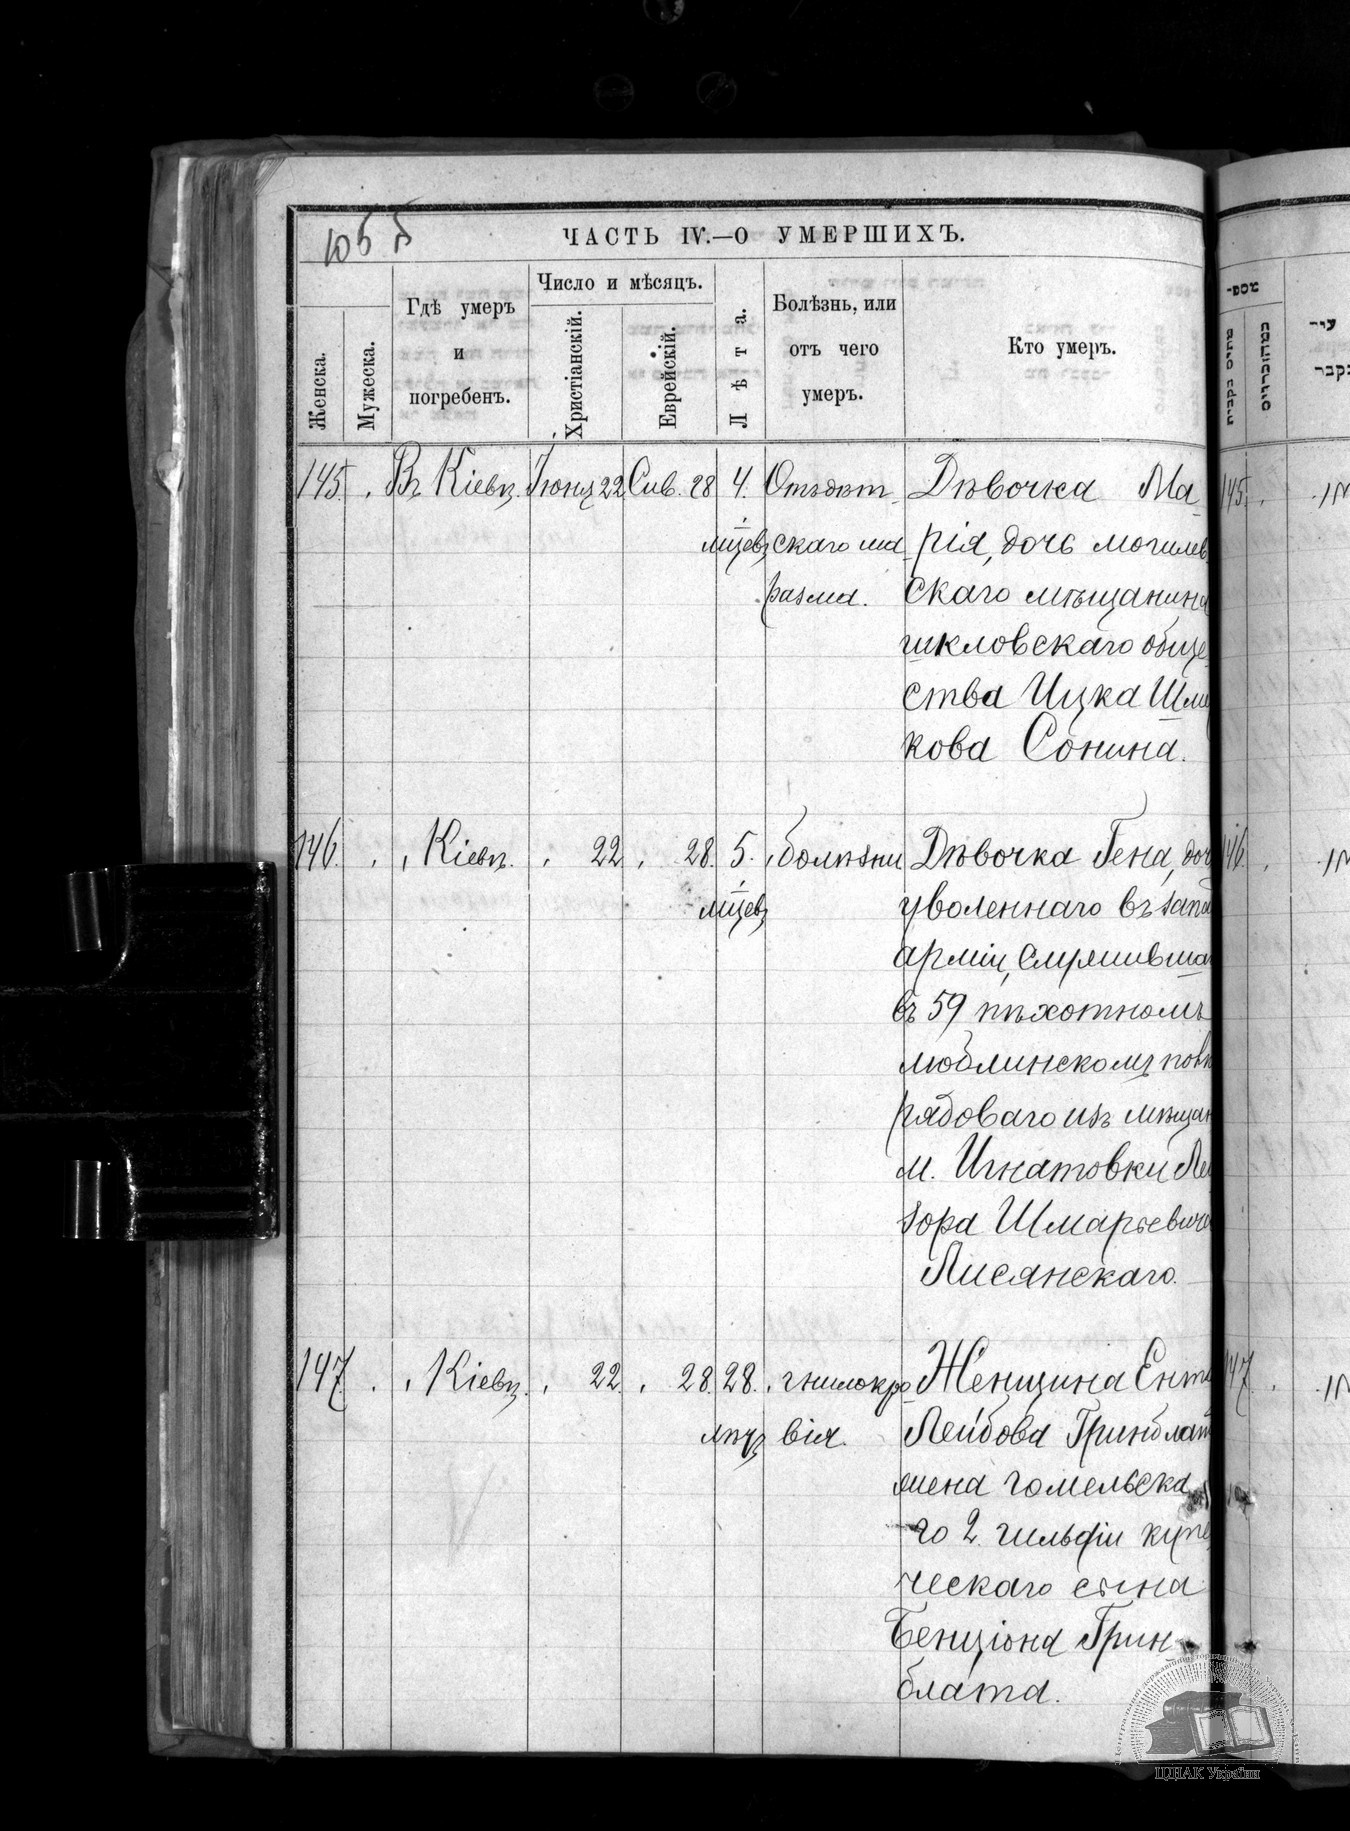 ЧАСТЬ IV.—О УМЕРШИХЪ.
Женска.
Мужеска.
Гдѣ умеръ
и
погребенъ.
Число и мѣсяцъ.
Христіанскій.
Еврейскій.
Лѣта.
Болѣзнь, или
отъ чего
умеръ.
Кто умеръ.
145. Въ Кіевѣ Іюня 22 Сив. 28 4. Отъ дѣт- Дѣвочка Ма- 145
мѣцевъ скаго ма- рія, дочь могилев-
разма. скаго мѣщанина
шкловскаго обще-
ства Ицка Шму
кова Сонина.
146. Кіевѣ. 22 28. 5. болѣзни Дѣвочка Гена, доч 146
мѣцевъ уволеннаго въ запа
арміи, служивша
въ 59 пѣхотномъ
люблинскомъ полк
рядоваго изъ мѣщан
м. Игнатовки Лей
зора Шмарьевича
Лисянскаго.
147. Кіевѣ. 22. 28. 28. гнилокро- Женщина Ента 147
лѣтъ вія. Лейбова Гринблат
жена гомельска
го 2 гильдіи купе
ческаго сына
Бенціона Грин-
блата.
ЦДІАК України